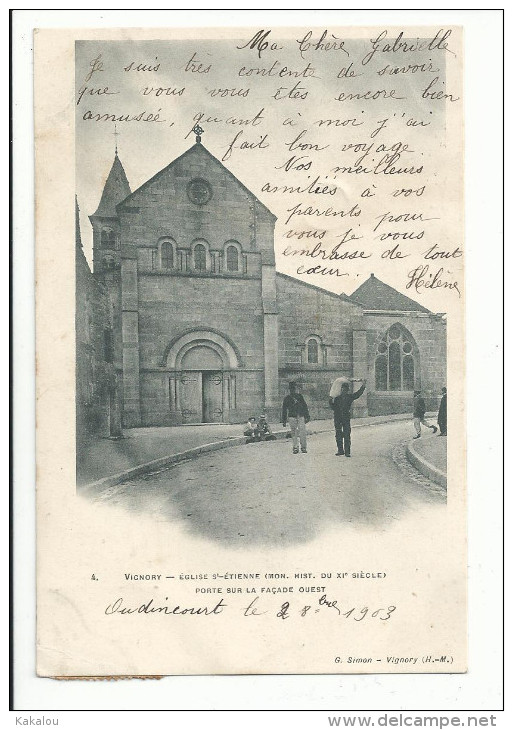 Ma Chère Gabrielle
Je suis très contente de savoir
que vous vous êtes encore bien
amusée, quant à moi j'ai
fait bon voyage.
Nos meilleurs
amitiés à vos
parents pour
vous je vous
embrasse de tout
cœur. Hélène
4. VIGNORY — ÉGLISE St-ÉTIENNE (MON. HIST. DU XIe SIÈCLE)
PORTE SUR LA FAÇADE OUEST
Oudincourt le 2 8bre 1903
G. Simon – Vignory (H.-M.)
Kakalou
http://www.delcampe.net